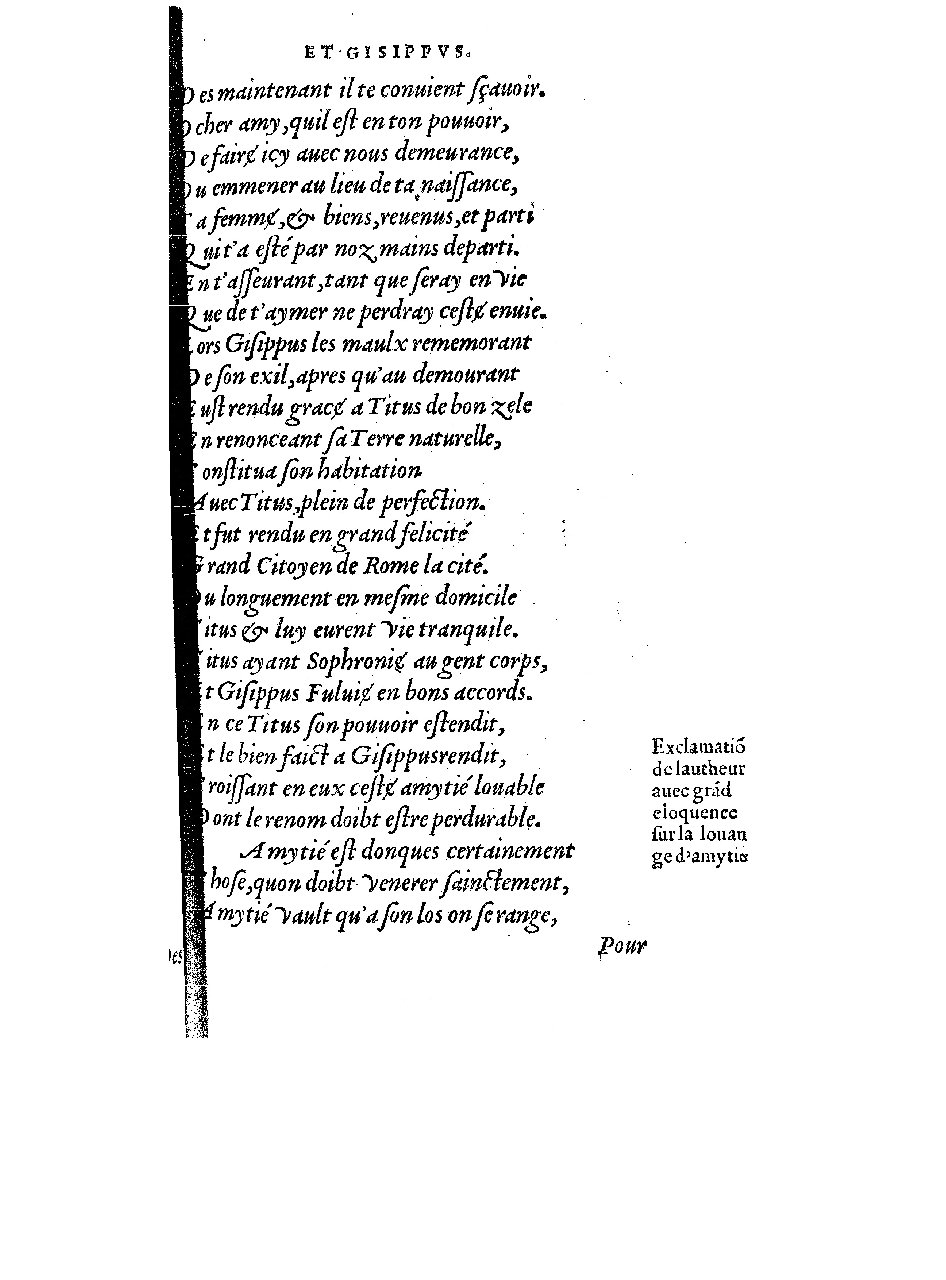 ET GISIPPVS.
Des maintenant il te conuient ſçauoir.
O cher amy, quil eſt en ton pouuoir,
De faire icy auec nous demeurance,
Ou emmener au lieu de ta naiſſance,
Ta femme, & biens, reuenus, et parti
Qui t'a eſté par noz mains departi.
En t'aſſeurant, tant que ſeray en vie
Que de t'aymer ne perdray ceſte enuie.
Lors Giſippus les maulx rememorant
De ſon exil, apres qu'au demourant
Euſt rendu grace a Titus de bon zele
En renonceant ſa Terre naturelle,
Conſtitua ſon habitation
Auec Titus, plein de perfection.
Et fut rendu en grand felicité
Grand Citoyen de Rome la cité.
Ou longuement en meſme domicile
Titus & luy eurent vie tranquile.
Titus ayant Sophronie au gent corps,
Et Giſippus Fuluie en bons accords.
En ce Titus ſon pouuoir eſtendit,
Et le bien faict a Giſippus rendit,
Croiſſant en eux ceſte amytié louable
Dont le renom doibt eſtre perdurable.
Exclamatiõ
de lautheur
auec grád
eloquence
ſur la louan
ge d'amytie
Amytié eſt donques certainement
Choſe, quon doibt venerer ſainctement,
Amytié vault qu'a ſon los on ſe range,
Pour